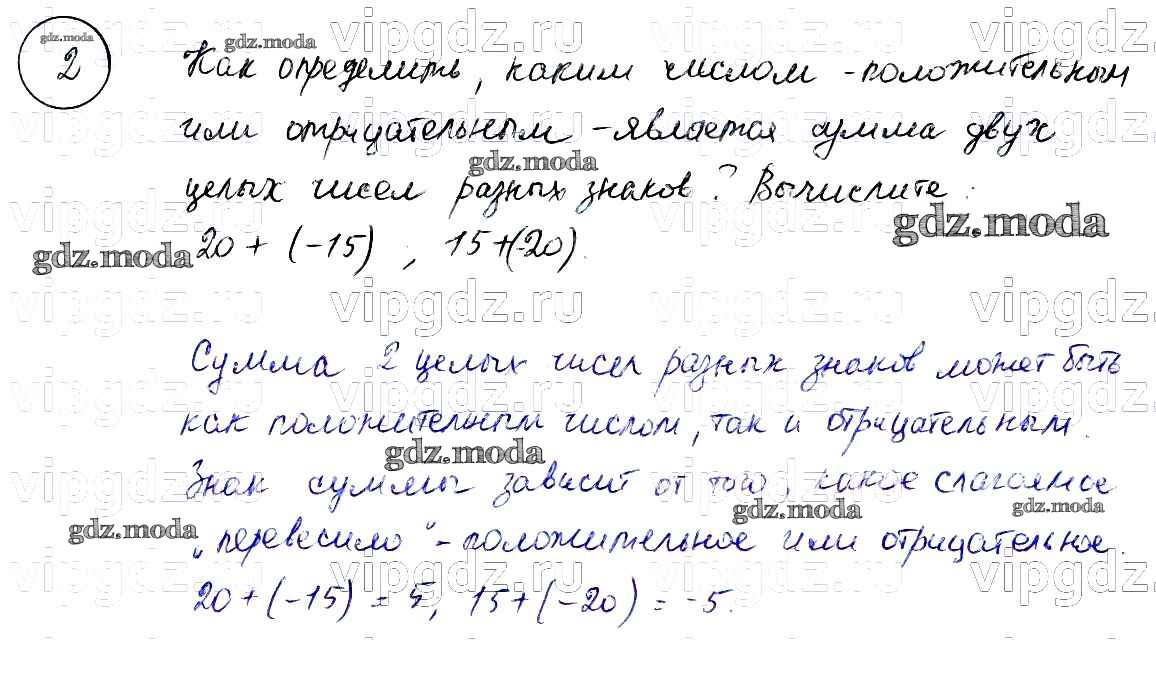 2
Как определить, каким числом - положительным
или отрицательным - является сумма двух
целых чисел разных знаков? Вычислите:
20 + (-15), 15+(-20).
Сумма 2 целых чисел разных знаков может быть
как положительным числом, так и отрицательным.
Знак суммы зависит от того, какое слагаемое
„перевесило" - положительное или отрицательное.
20+(-15) = 5, 15+(-20) = -5.
gdz.moda
vipgdz.ru